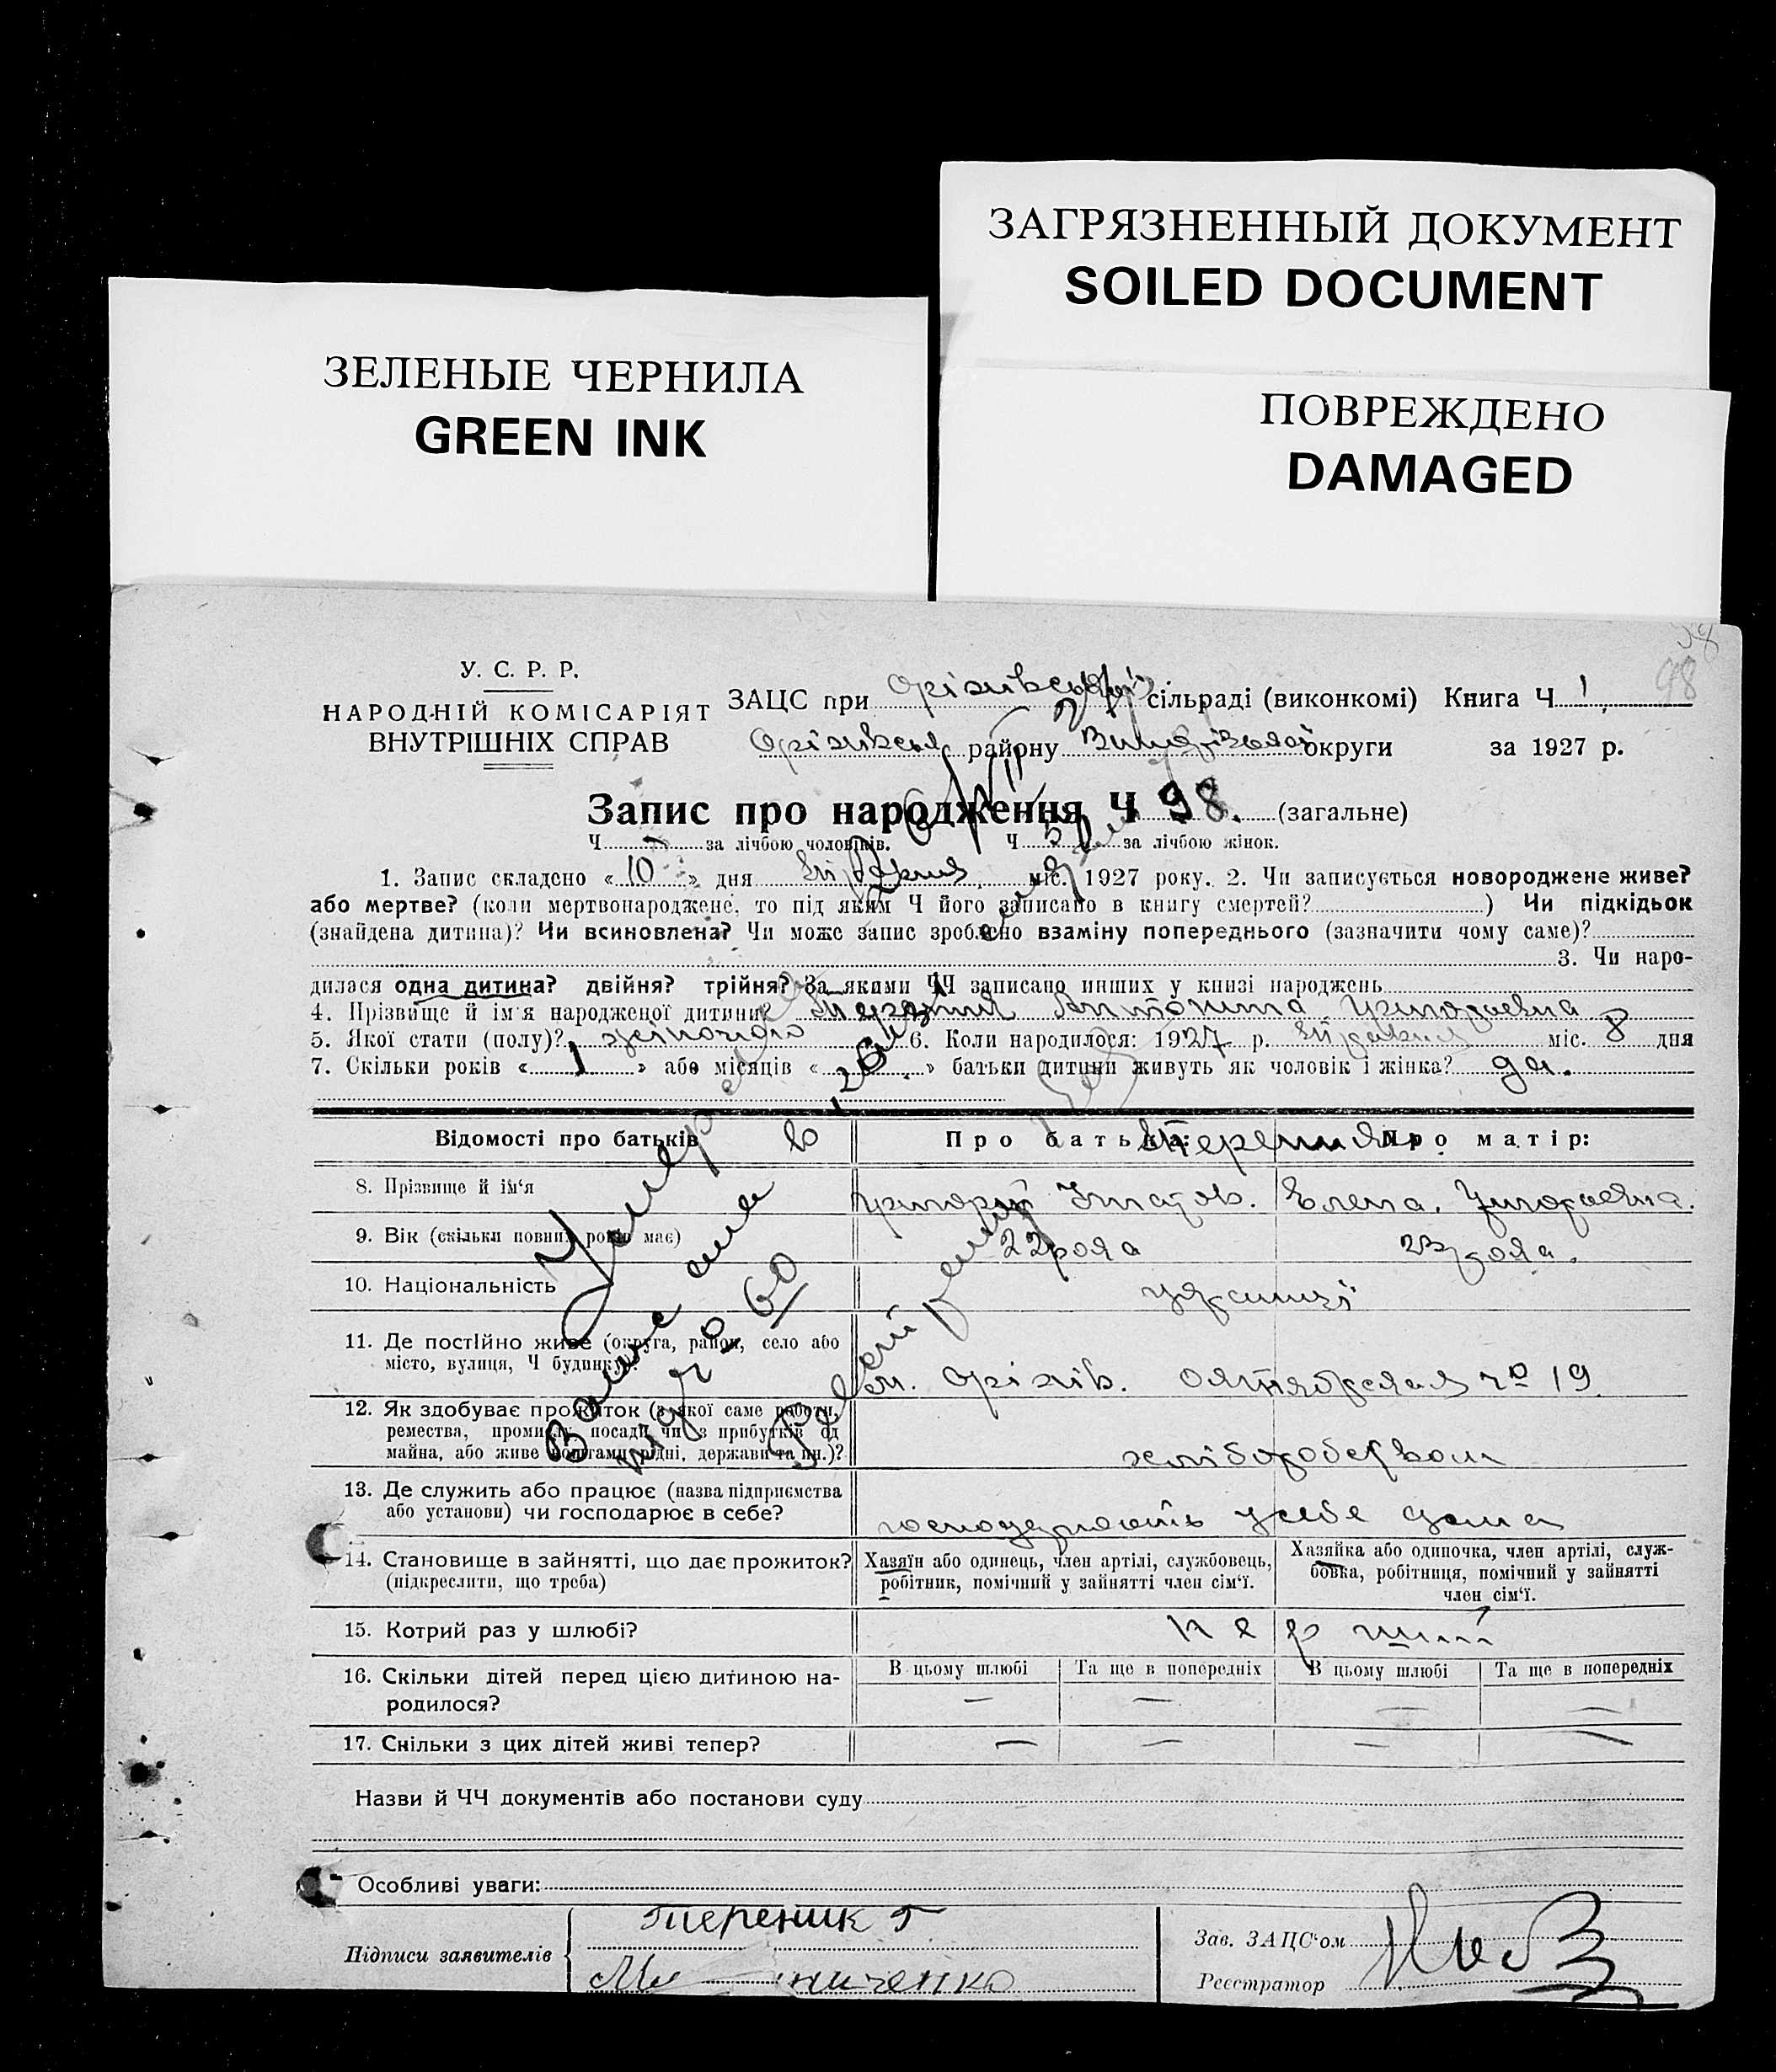 ЗАГРЯЗНЕННЫЙ ДОКУМЕНТ
SOILED DOCUMENT
ЗЕЛЕНЫЕ ЧЕРНИЛА
GREEN INK
ПОВРЕЖДЕНО
DAMAGED
98
У. С. Р. Р.
НАРОДНІЙ КОМІСАРІЯТ
ВНУТРІШНІХ СПРАВ
ЗАЦС при Оріхівській сільраді (виконкомі) Книга Ч 1
району округи за 1927 р.
Запис про народження Ч 98. (загальне)
Ч за лічбою чоловіків. Ч за лічбою жінок.
1. Запис складено « 10 » дня міс. 1927 року. 2. Чи записується новороджене живе?
або мертве? (коли мертвонароджене, то під яким Ч його записано в книгу смертей? ) Чи підкідьок
(знайдена дитина)? Чи всиновлена? Чи може запис зроблено взаміну попереднього (зазначити чому саме)?
3. Чи наро-
дилася одна дитина? двійня? трійня? За якими ЧЧ записано инших у книзі народжень
4. Прізвище й ім'я народженої дитини Антонина Григорьевна
5. Якої стати (полу)? жіночого 6. Коли народилося: 1927 р. міс. 8 дня
7. Скільки років « 1 » або місяців « » батьки дитини живуть як чоловік і жінка? да.
Відомості про батьків Про батька: Про матір:
8. Прізвище й ім'я Григорій Игнатов. Елена. Григорьевна.
9. Вік (скільки повних років має) 22 года 23 года.
10. Національність українці
11. Де постійно живе (округа, район, село або
місто, вулиця, Ч будинку)? м. Оріхів. Октябрская № 19.
12. Як здобуває прожиток (з якої саме роботи,
ремества, промислу, посади чи з прибутків од
майна, або живе допомогами рідні, держави та ин.)? хліборобством
13. Де служить або працює (назва підприємства
або установи) чи господарює в себе? господарюють у себе дома
14. Становище в зайнятті, що дає прожиток?
(підкреслити, що треба)
Хазяїн або одинець, член артілі, службовець,
робітник, помічний у зайнятті член сім'ї.
Хазяйка або одиночка, член артілі, служ-
бовка, робітниця, помічний у зайнятті
член сім'ї.
15. Котрий раз у шлюбі? перший
16. Скільки дітей перед цією дитиною на-
родилося?
В цьому шлюбі Та ще в попередніх В цьому шлюбі Та ще в попередніх
— — — —
17. Скільки з цих дітей живі тепер? — — — —
Назви й ЧЧ документів або постанови суду
Особливі уваги:
Підписи заявителів
Тереник Г
Зав. ЗАЦС'ом
Реєстратор